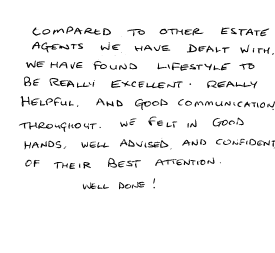 COMPARED TO OTHER ESTATE
AGENTS WE HAVE DEALT WITH,
WE HAVE FOUND LIFESTYLE TO
BE REALLY EXCELLENT. REALLY
HELPFUL, AND GOOD COMMUNICATION
THROUGHOUT. WE FELT IN GOOD
HANDS, WELL ADVISED, AND CONFIDENT
OF THEIR BEST ATTENTION.
WELL DONE!